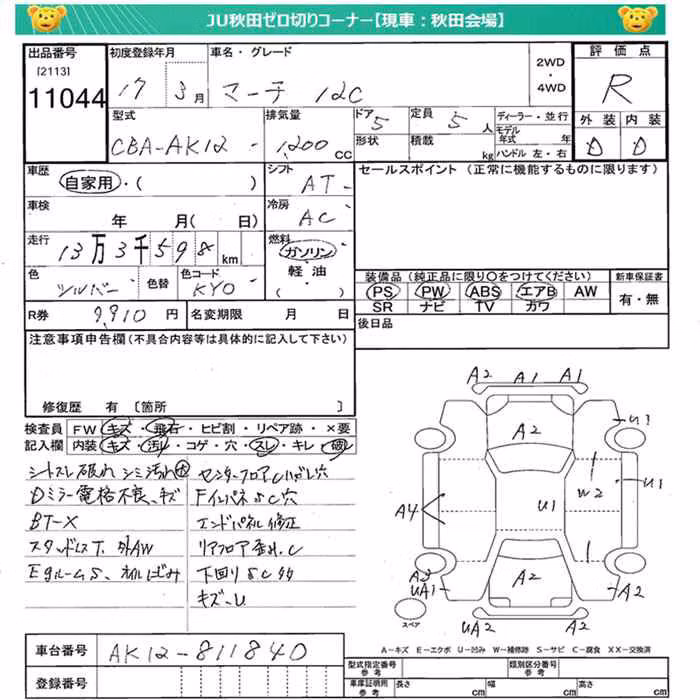 JU秋田ゼロ切りコーナー【現車:秋田会場】
出品番号 初度登録年月 車名・グレード 2WD・4WD 評価点
[2113]
11044 17 3月 マーチ 12C R
型式 排気量 ドア 定員 ディーラー・並行 外装 内装
CBA-AK12 1200cc 5 5人 モデル年式 年 D D
形状 積載 kg ハンドル 左・右
車歴 シフト セールスポイント (正常に機能するものに限ります)
自家用・( ) AT
車検 冷房
年 月( 日) AC
走行 燃料
13万3千598km ガソリン・軽油・( )
色 色替 色コード 装備品 (純正品に限り○をつけてください) 新車保証書
シルバー KY0 PS PW ABS エアB AW 有・無
SR ナビ TV カワ
R券 9,910円 名変期限 月 日 後日品
注意事項申告欄(不具合内容等は具体的に記入して下さい)
修復歴 有 〔箇所 〕
検査員 FW キズ・飛石・ヒビ割・リペア跡・×要
記入欄 内装 キズ・汚レ・コゲ・穴・スレ・キレ・破レ
シートスレ破れ シミ汚れ大 センターフロアCハガレ穴
Dミラー電格不良、キズ FインパネSC穴
BT-X エンドパネル修正
スタッドレスT. 外AW リアフロア歪み.C
EgルームS、オイルにじみ 下回りSC多々
キズ-U
A2 A1 A1
A2 U3
W2 U1
U1
A4
A3 A2
UA1 A2
UA2 A2
スペア
A-キズ E-エクボ U-凹み W-補修跡 S-サビ C-腐食 XX-交換済
車台番号 AK12-811840
登録番号
型式指定番号 参考 類別区分番号 参考
車庫証明用 参考 長さ cm 幅 cm 高さ cm